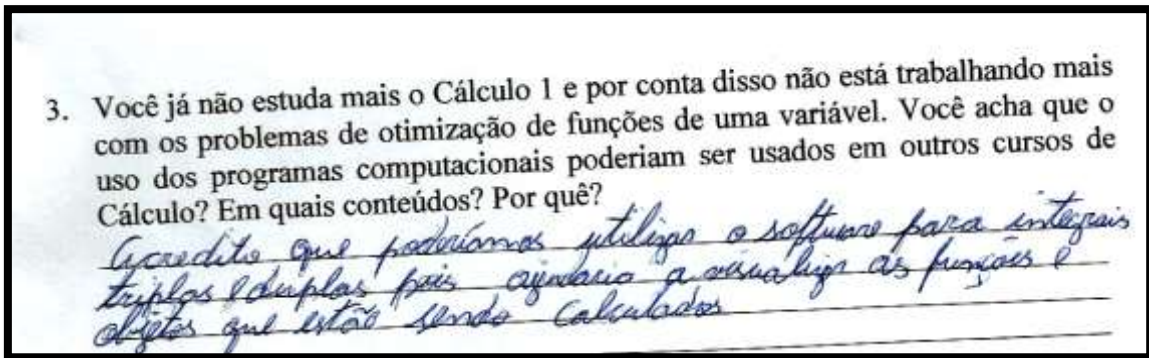 3. Você já não estuda mais o Cálculo 1 e por conta disso não está trabalhando mais
com os problemas de otimização de funções de uma variável. Você acha que o
uso dos programas computacionais poderiam ser usados em outros cursos de
Cálculo? Em quais conteúdos? Por quê?
Acredito que poderíamos utilizar o software para integrais
triplas e duplas pois ajudaria a visualizar as funções e
objetos que estão sendo calculados